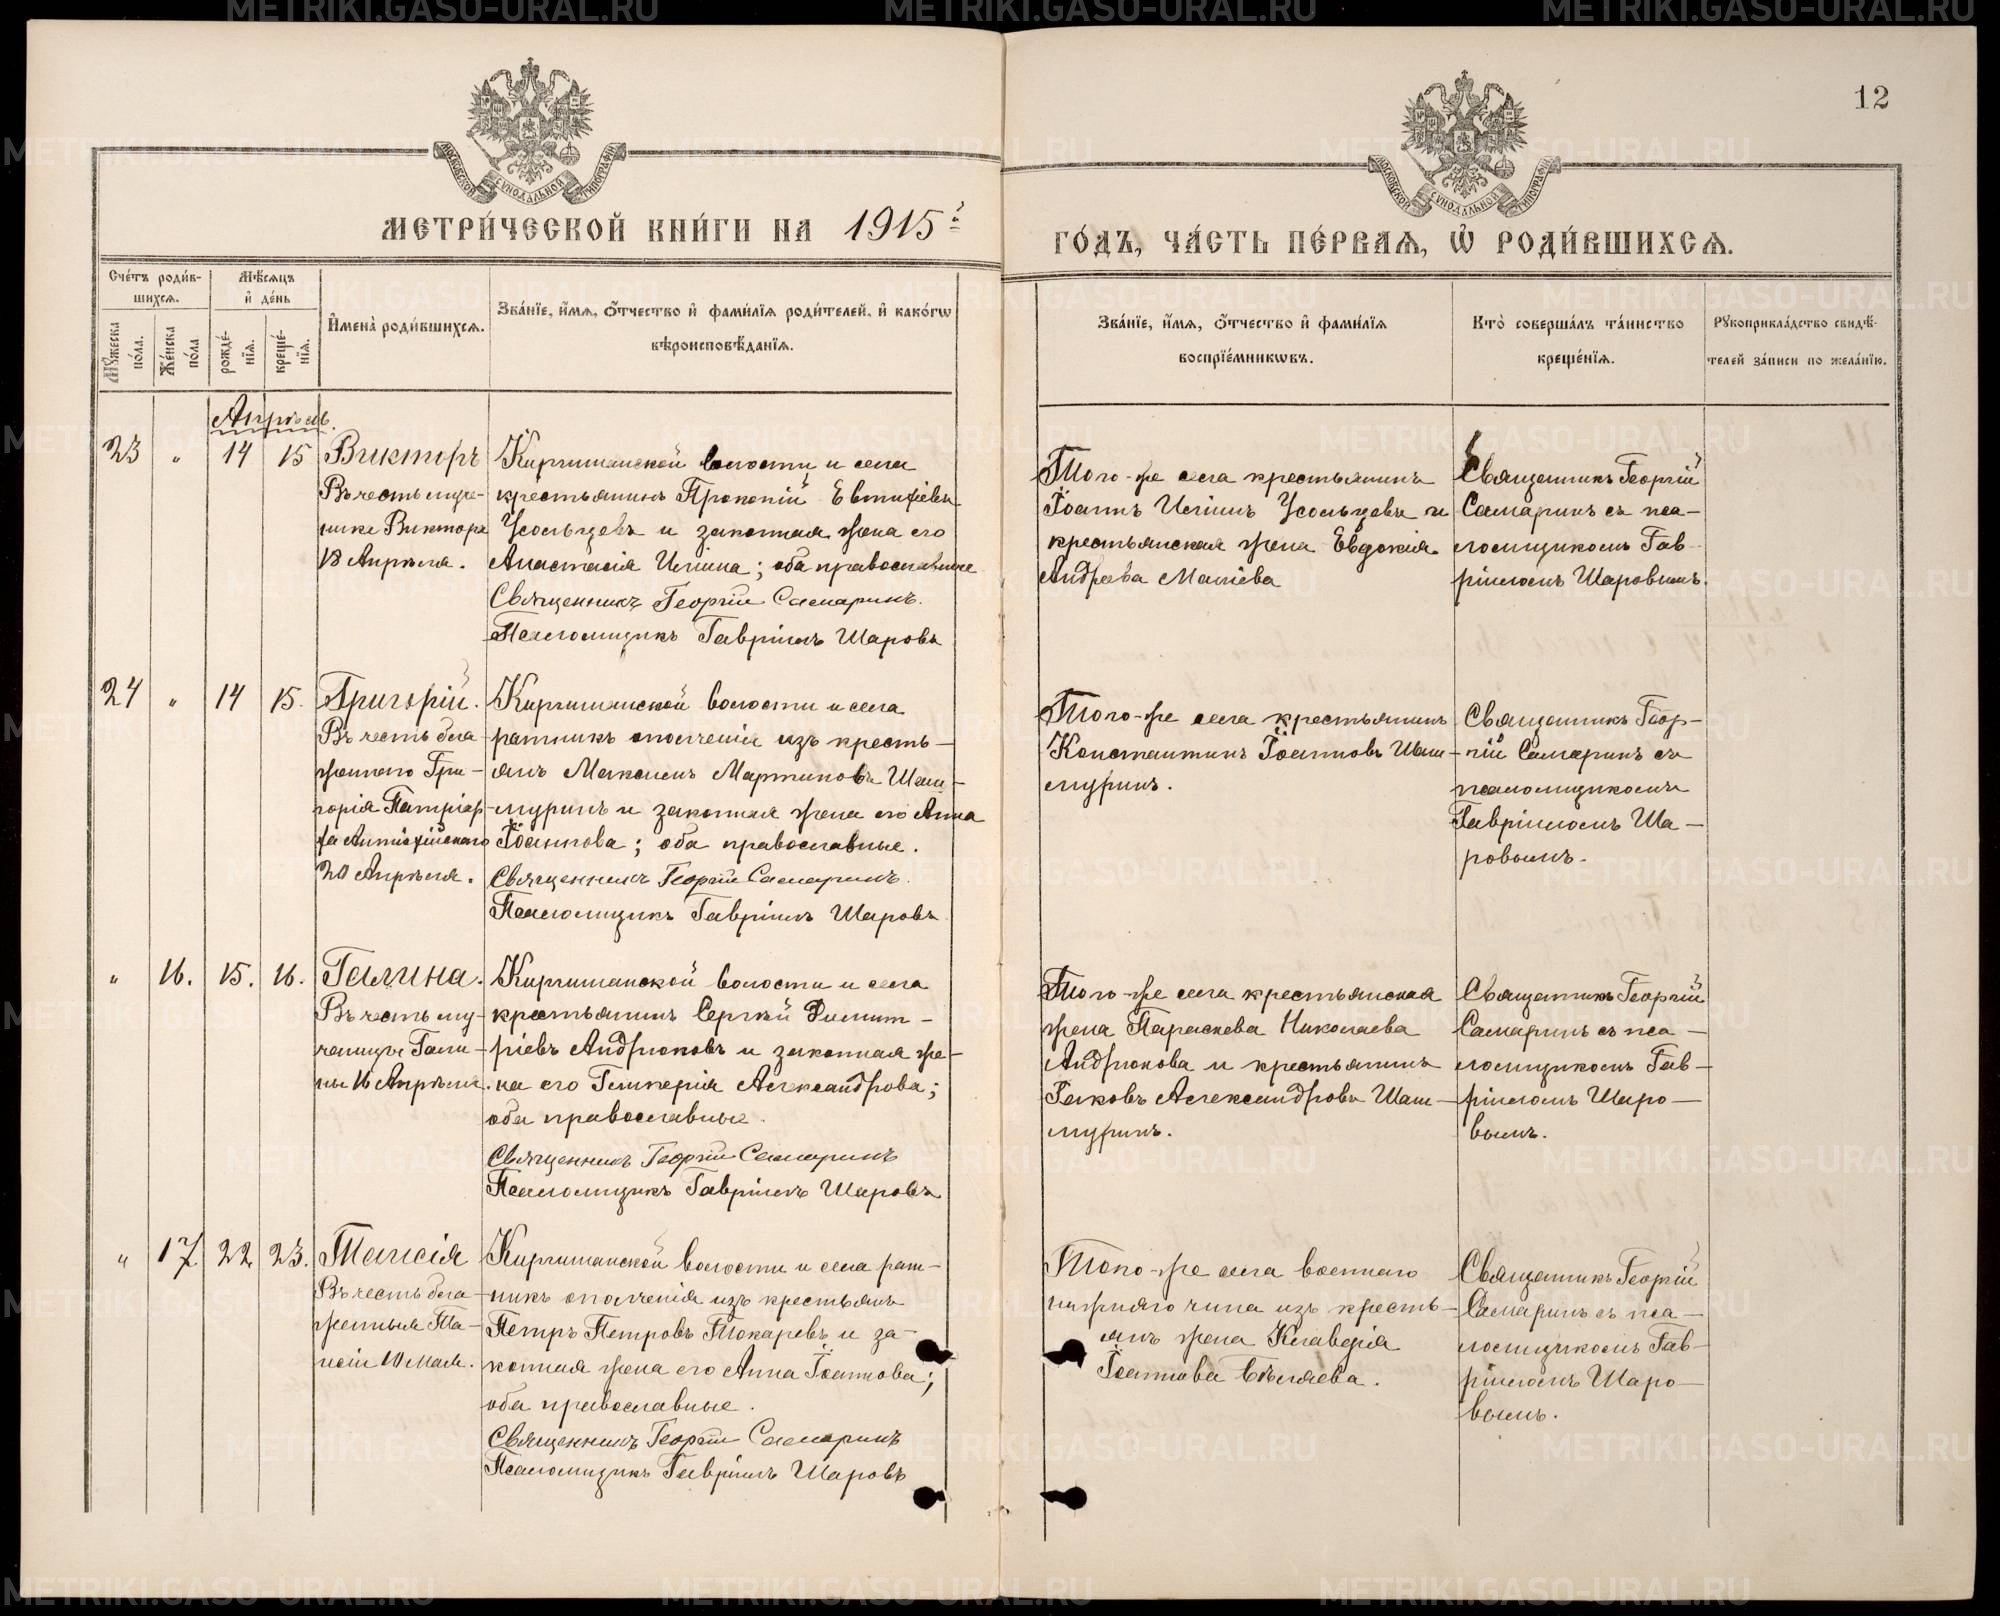 12
МЕТРИ́ЧЕСКОЙ КНИ́ГИ НА 1915 й
ГО́ДЪ, ЧА́СТЬ ПЕ́РВАѦ, Ѽ РОДИ́ВШИХСѦ.
Сче́тъ роди́в-
шихсѧ.
Мѣ́сѧцъ
и҆ де́нь
И҆мена̀ роди́вшихсѧ.
Зва́нїе, и҆́мѧ, ѻ҆́тчество и҆ фами́лїѧ роди́телей, и҆ како́гѡ
вѣроисповѣ́данїѧ.
Мꙋ́жеска
по́ла.
Же́нска
по́ла
рожде́-
нїѧ.
креще́-
нїѧ.
Зва́нїе, и҆́мѧ, ѻ҆́тчество и҆ фами́лїѧ
воспрїе́мникѡвъ.
Кто̀ соверша́лъ та́инство
креще́нїѧ.
Рꙋкоприкла́дство свидѣ́-
телей за́писи по жела́нїю.
Апрѣль.
23 „ 14 15 Викторъ
Въ честь муче-
ника Виктора
18 Апрѣля.
Киргишанской волости и села
крестьянинъ Прокопій Евтихіевъ
Усольцевъ и законная жена его
Анастасія Ильина; оба православные
Священникъ Георгій Самаринъ.
Псаломщикъ Гавріилъ Шаровъ
Того-же села крестьянинъ
Іоаннъ Ильинъ Усольцевъ и
крестьянская жена Евдокія
Андреева Малѣева
Священникъ Георгій
Самаринъ съ пса-
ломщикомъ Гав-
ріиломъ Шаровымъ.
24 „ 14 15. Григорій.
Въ честь бла-
женнаго Гри-
горія Патріар-
ха Антіохійскаго
20 Апрѣля.
Киргишанской волости и села
ратникъ ополченія изъ кресть-
янъ Максимъ Мартиновъ Шаш-
муринъ и законная жена его Анна
Іоаннова; оба православные.
Священникъ Георгій Самаринъ.
Псаломщикъ Гавріилъ Шаровъ
Того-же села крестьянинъ
Константинъ Іоанновъ Шаш-
муринъ.
Священникъ Геор-
гій Самаринъ съ
псаломщикомъ
Гавріиломъ Ша-
ровымъ.
„ 16. 15. 16. Галина.
Въ честь му-
ченицы Гали-
ны 16 Апрѣля.
Киргишанской волости и села
крестьянинъ Сергѣй Димит-
ріевъ Андрюковъ и законная же-
на его Гликерія Александрова;
оба православные.
Священникъ Георгій Самаринъ
Псаломщикъ Гавріилъ Шаровъ
Того-же села крестьянская
жена Параскева Николаева
Андрюкова и крестьянинъ
Іаковъ Александровъ Шаш-
муринъ.
Священникъ Георгій
Самаринъ съ пса-
ломщикомъ Гав-
ріиломъ Шаро-
вымъ.
„ 17 22 23. Таисія
Въ честь бла-
женныя Та-
исіи 10 мая.
Киргишанской волости и села рат-
никъ ополченія изъ крестьянъ
Петръ Петровъ Токаревъ и за-
конная жена его Анна Іоаннова;
оба православные.
Священникъ Георгій Самаринъ
Псаломщикъ Гавріилъ Шаровъ
Того-же села военнаго
нижняго чина изъ кресть-
янъ жена Клавдія
Іоаннова Бѣляева.
Священникъ Георгій
Самаринъ съ пса-
ломщикомъ Гав-
ріиломъ Шаро-
вымъ.